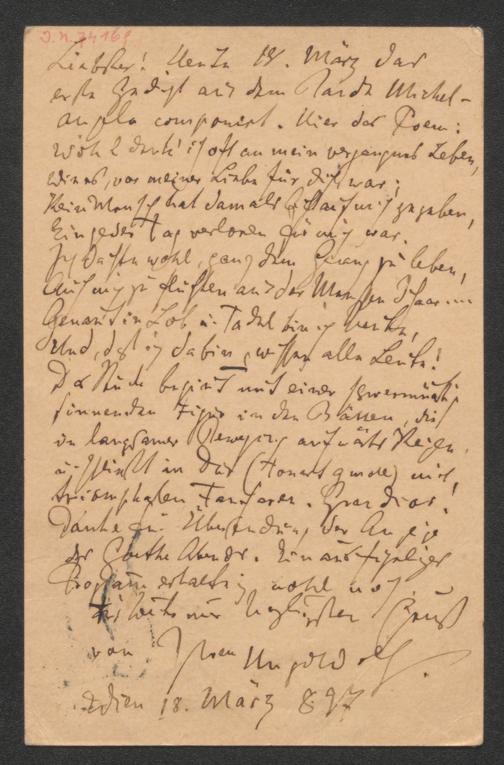 J.N. 74169
Liebster! Heute 18. März das
erste Gedicht aus dem Bande Michel-
angelo componirt. Hier das Poem:
Wohl denk' ich oft an mein vergangnes Leben,
Wie es, vor meiner Liebe für dich war;
Kein Mensch hat damals Acht auf mich gegeben,
Ein jeder Tag verloren für mich war.
Ich dachte wohl, ganz dem Gesang zu leben,
Auch mich zu flüchten aus der Menschen Schaar....
Genannt in Lob u. Tadel bin ich heute,
Und, daß ich da bin, wissen alle Leute!
Das Stück beginnt mit einer schwermüthig
sinnenden Figur in den Bässen, die
in langsamer Bewegung aufwärts steigen
u. schließt in Dur (Tonart gmoll) mit
triumphalen Fanfaren. Grandios!
Danke für Übersendung der Anzeige
des Goethe Abends. Ein ausführliches
Programm erhalte ich wohl noch.
Für heute nur herzlichsten Gruß
von Ihrem Hugo Wolf.
Wien 18. März 897